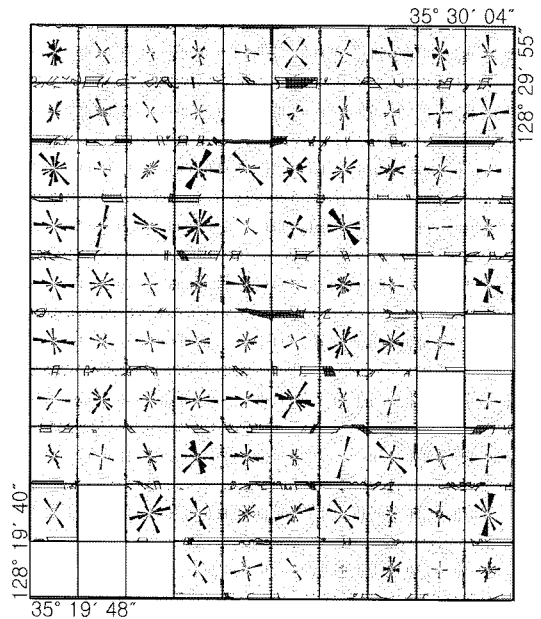 35° 30′ 04″
128° 29′ 55″
128° 19′ 40″
35° 19′ 48″